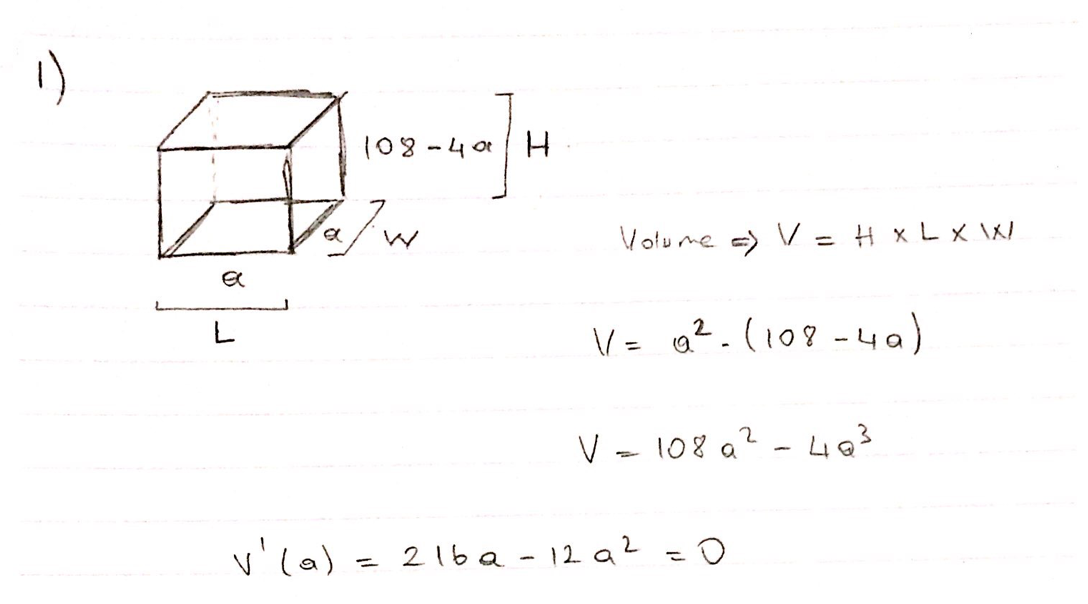 1)
108-4a H
a W
a
L
Volume ⇒ V = H x L x W
V = a² . (108-4a)
V = 108a² - 4a³
V'(a) = 216a - 12a² = 0